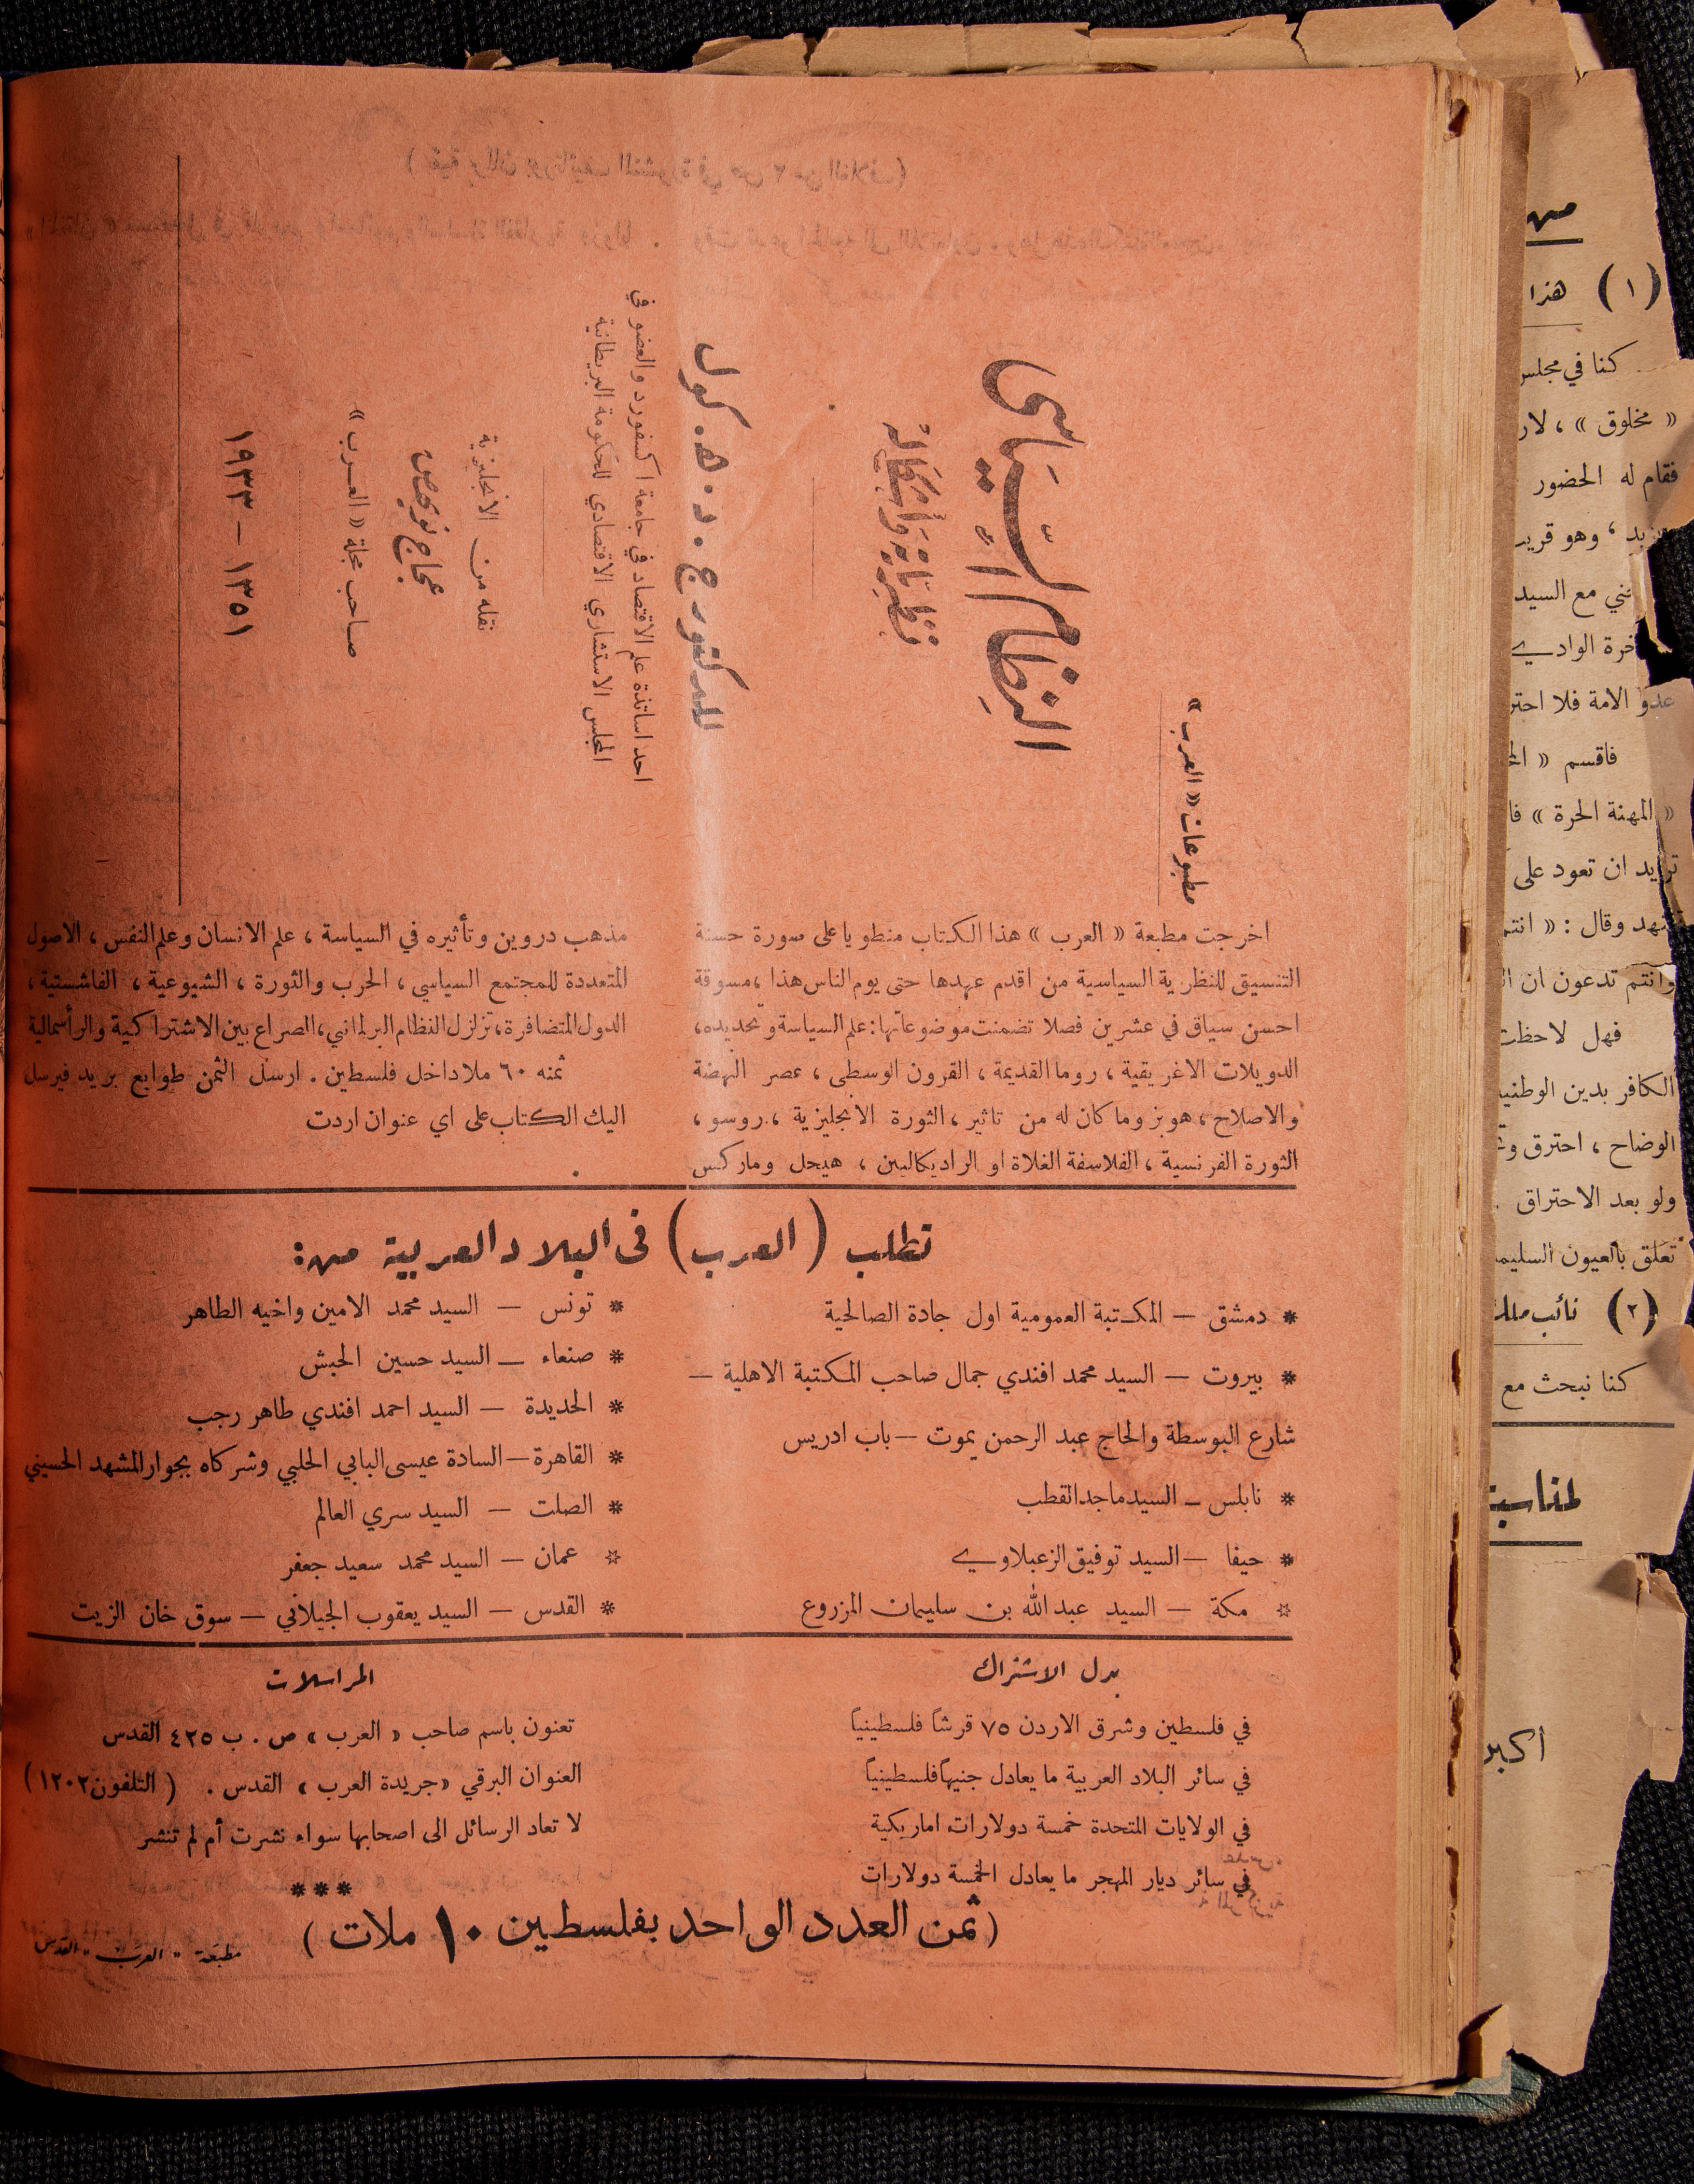 مطبوعات « العرب »
النِظامُ السِّيَاسِى
نظريَّاتهُ وَأشكَالهُ
للدكتور ج . د . ه . كول
احد اساتذة علم الاقتصاد في جامعة اكسفورد والعضو في
المجلس الاستشاري الاقتصادي للحكومة البريطانية
نقله من الانجليزية
عجاج نويهض
صاحب مجلة « العرب »
١٣٥١ – ١٩٣٣
اخرجت مطبعة « العرب » هذا الكتاب منطويا على صورة حسنة
التنسيق للنظرية السياسية من اقدم عهدها حتى يوم الناس هذا ، مسوقة
احسن سياق في عشرين فصلا تضمنت موضوعاتها : علم السياسة وتحديده،
الدويلات الاغريقية ، روما القديمة ، القرون الوسطى ، عصر النهضة
والاصلاح ، هوبز وما كان له من تاثير ، الثورة الانجليزية ، روسو ،
الثورة الفرنسية ، الفلاسفة الغلاة او الراديكاليين ، هيجل وماركس
مذهب دروين وتأثيره في السياسة ، علم الانسان وعلم النفس ، الاصول
المتعددة للمجتمع السياسي ، الحرب والثورة ، الشيوعية ، الفاشستية ،
الدول المتضافرة، تزلزل النظام البرلماني، الصراع بين الاشتراكية والرأسمالية
ثمنه ٦٠ ملا داخل فلسطين . ارسل الثمن طوابع بريد فيرسل
اليك الكتاب على اي عنوان اردت
تطلب ( العرب ) فى البلاد العربية من :
* دمشق – المكتبة العمومية اول جادة الصالحية
* بيروت – السيد محمد افندي جمال صاحب المكتبة الاهلية –
شارع البوسطة والحاج عبد الرحمن يموت – باب ادريس
* نابلس – السيد ماجد القطب
* حيفا – السيد توفيق الزعبلاوي
* مكة – السيد عبد الله بن سليمان المزروع
* تونس – السيد محمد الامين واخيه الطاهر
* صنعاء – السيد حسين الحبش
* الحديدة – السيد احمد افندي طاهر رجب
* القاهرة – السادة عيسى البابي الحلبي وشركاه بجوار المشهد الحسيني
* الصلت – السيد سري العالم
* عمان – السيد محمد سعيد جعفر
* القدس – السيد يعقوب الجيلاني – سوق خان الزيت
بدل الاشتراك
في فلسطين وشرق الاردن ٧٥ قرشاً فلسطينياً
في سائر البلاد العربية ما يعادل جنيهاً فلسطينياً
في الولايات المتحدة خمسة دولارات اماريكية
في سائر ديار المهجر ما يعادل الخمسة دولارات
المراسلات
تعنون باسم صاحب « العرب » ص . ب ٤٢٥ القدس
العنوان البرقي « جريدة العرب » القدس . ( التلفون ١٢٠٢ )
لا تعاد الرسائل الى اصحابها سواء نشرت أم لم تنشر
***
( ثمن العدد الواحد بفلسطين ١٠ ملات )
مطبَعة " العرَب " القدس
من
( ١ ) هذا
كنا في مجلس
« مخلوق » ، لار
فقام له الحضور
وهو قريب
مع السيد
الوادي
عدو الامة فلا احتر
فاقسم « الح
« المهنة الحرة » فا
تريد ان تعود على
وقال : « انتم
وانتم تدعون ان ال
فهل لاحظت
الكافر بدين الوطنية
الوضاح ، احترق و
ولو بعد الاحتراق .
تعلق بالعيون السليمة
( ٢ ) نائب ملك
كنا نبحث مع
لمناسبة
أكبر